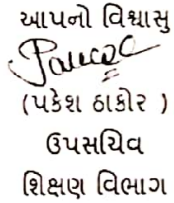 આપનો વિશ્વાસુ
(પકેશ ઠાકોર )
ઉપસચિવ
શિક્ષણ વિભાગ